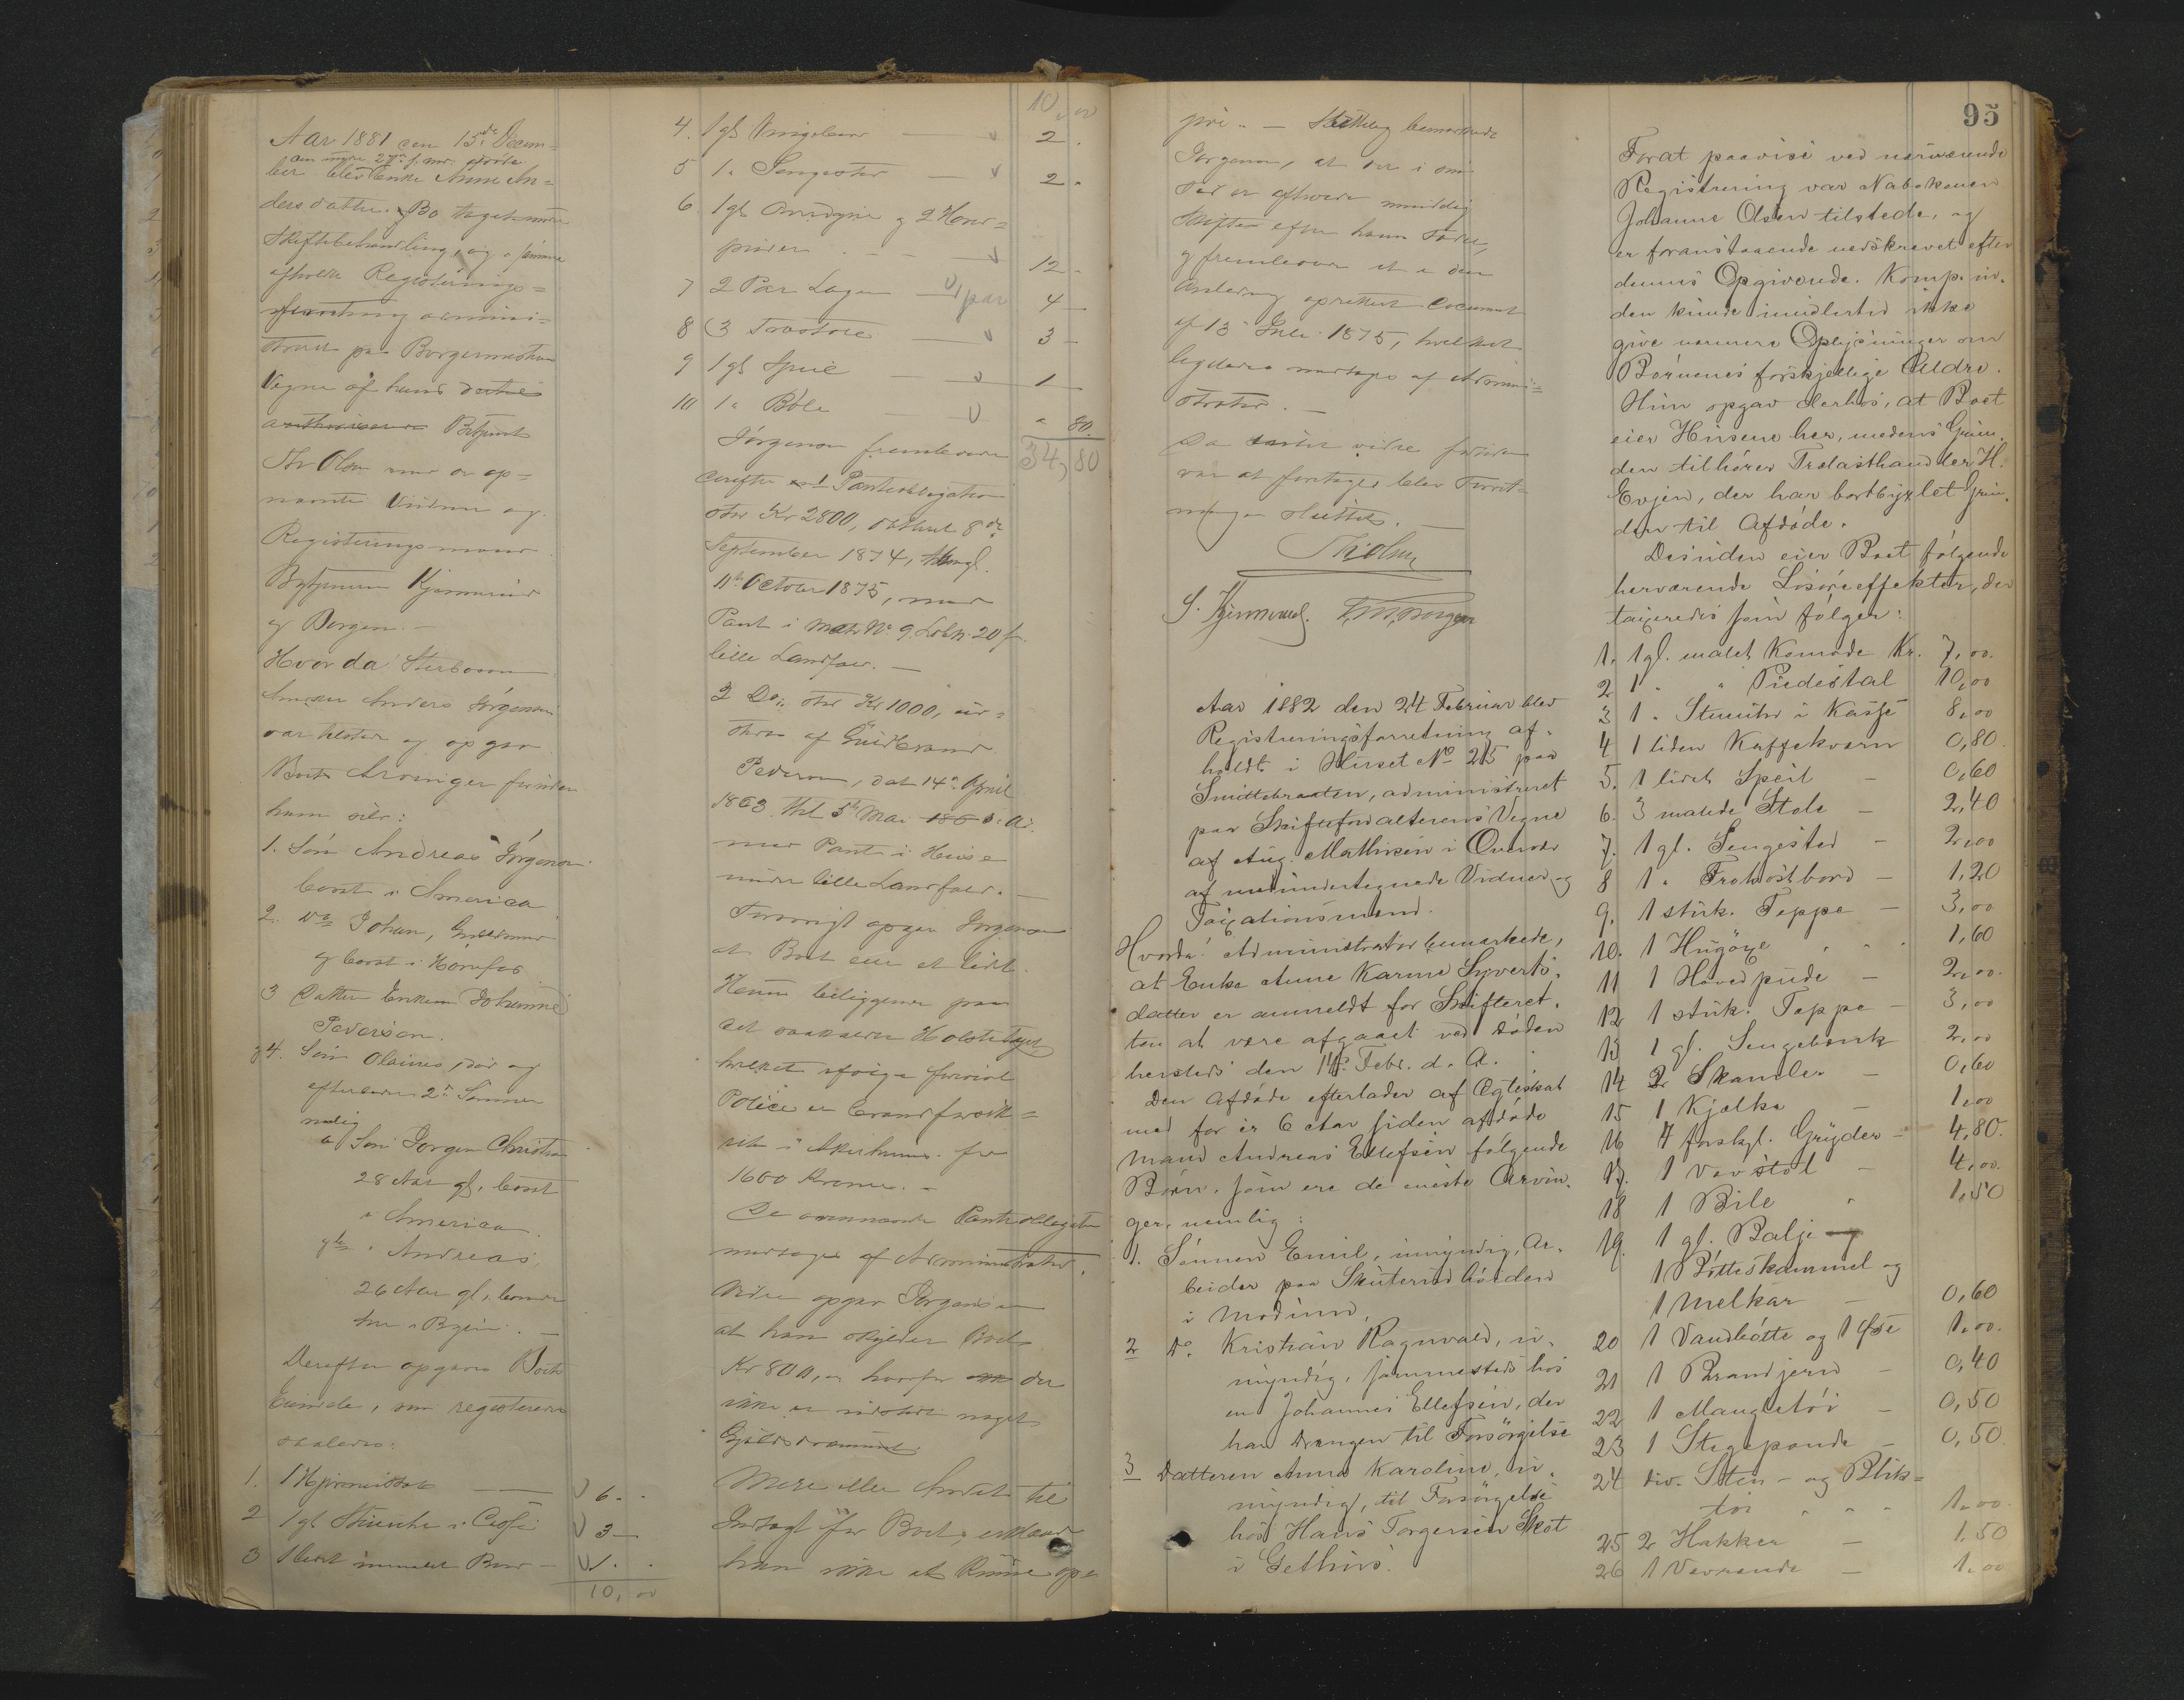 Aar 1881 den 15de Decem=
ber blev Enke Anne An=
dersdatters Bo taget under
Skiftebehandling, og i samme
afholdt Registrerings=
forretning admini=
streret paa Borgermesterens
Vegne af hans
Betjent
Th Olsen med de op=
nævnte Vidner og
Registreringsmænd
Bytjenerne Kjennerud
og Borgen.
Hvor da! Sterboens
Anders Jørgensen
var tilstede og opgav
Boets Arvinger foruden
ham selv:
1. Søn Andreas Jørgensen
bosat i America
2. Do Johan,
og bosat i Hønefos
3 Datter Enken Johanne
Pedersen.
4. Søn Olaüus, død og
efterladt 2de Sønner
nemlig
a Søn Jørgen Christian
28 Aar gl, bosat
i America
Andreas,
26 Aar gl, boende
her i Byen.
Derefter opgaves Boets
Eiendele, som registreredes
saaledes:
1. 6.
2 1 gl Stueuhr i Casse 3
3 1 lidet umalet Bord 1.
10,00
10,00
4. 1 gl Vingebord 2.
5 1 " Sengested 2.
6 1 gl Overdyne og 2 Hoved=
puder 12
7 2 Par Lagen par 4
8 3 Træstole 3
9 1 gl Speil 1
10 1 " Bøle " 80.
Jørgensen fremleverede 34,80
derefter 1 Pantobligation
stor Kr 2800, dateret 8de
September 1874, thingl.
11te October 1875, med
Pant i Matr No 9. Lobn. 20 f
lille Landfald.
2 Do stor Kr 1000, ud=
stedt af Gudbrand
Pedersen, dat 14de April
1863. thl 5te Mai 186 s. A.
med Pant i Huse
under lille Landfald.
Forøvrigt opgav Jørgensen
at Boet eier et lidet
Huus beliggende paa
det saakaldte Holstetoget
hvilket ifølge forevist
Police er brandforsik=
ret i Akershuus for
1600 Kroner.
De ovennævnte Pantobligationer
modtoges af Administrator.
Videre opgav Jørgensen
at han skylder Boet
Kr 800, hvorfor der
ikke er udstedt noget
Gjældsdocument.
Mere eller Andet til
Indtægt for Boet, erklærede
han ikke at kunne op=
give. Slutteligt bemærkede
Jørgensen, at der i sin
Tid er afholdt myndig
Skifte efter hans Fader,
og fremleverede et i den
Anledning oprettet Document
af 13 Juli 1875, hvilket
ligeledes modtoges af Admini=
strator.
Da intet videre foruden
var at foretages blev Forret=
ningen sluttet.
Th Olsen
S. Kjennerud. Borgen
Aar 1882 den 24 Februar blev
Registreringsforretning af=
holdt i Huset No 215 paa
Smittebraaten, administreret
paa Skifteforvalterens Vegne
af Aug. Mathisen i Overvær
af medundertegnede Vidner og
Taxationsmænd.
Hvorda! Administrator bemærkede,
at Enke Anne Karine Syverts=
datter er anmeldt for Skifteret=
ten at være afgaaet ved Døden
hersteds den 14de Febr. d. A.
Den afdøde efterlader af Ægteskab
med for ca 6 Aar siden afdøde
Mand Andreas Ellefsen følgende
Børn, som ere de eneste Arvin=
ger, nemlig:
1. Sønnen Emil, umyndig, Ar=
beider paa Skuterudhølden
i Modum,
2 Do. Kristian Ragnvald, u=
myndig, sammesteds hos
en Johannes Ellefsen, der
har Drengen til Forsørgelse
3 Datteren Anna Karoline, u=
myndig, til Forsørgelse
hos Hans Torgersen Skot
i Gethus.
95
Forat paavise ved nærværende
Registrering var Nabokonen
Johanne Olsen tilstede, og
er foranstaaende nedskrevet efter
dennes Opgivende. Komp.in=
den kunde imidlertid ikke
give nærmere Oplysninger om
Børnenes forskjellige Aldre.
Hun opgav derhos, at Boet
eier Husene her, medens Grun=
den tilhører Trælasthandler H.
Evjen, der har bortbyxlet Grun=
den til Afdøde.
Desuden eier Boet følgende
herværende Løsøreeffekter, der
taxeredes som følger:
1. 1 gl. malet Komode Kr. 7,00.
2 1 " " Piedestal 10,00
3 1 " Stueuhr i Kasse 8,00
4 1 liden Kaffekværn 0,80.
5. 1 lidet Speil 0,60
6. 3 malede Stole 2,40
7. 1 gl. Sengested 2,00
8 1 " Frokostbord 1,20
9. 1 stuk. Teppe 3,00
10. 1 Hugøxe 1,60
11 1 Hovedpude 2,00.
12 1 stuk. Teppe 3,00
13 1 gl. Sengebænk 2,00
14 2 Skamler 0,60
15 1 Kjælke 1,00
16 4 forskjl. Gryder 4,80.
17. 1 Vævstol 4,00.
18 1 Bile 1,50
19. 1 gl. Balje
1 Bøtteskammel og
1 Melkar 0,60
20 1 Vandbøtte og 1 Øse 1,00.
21 1 Brandjern 0,40
22 1 Mangletøi 0,50
23 1 Stegepande 0,50.
24 div. Sten- og Blik=
tøi 1,00.
25 2 Hakker 1,50
26 1 Vævrende 1,00